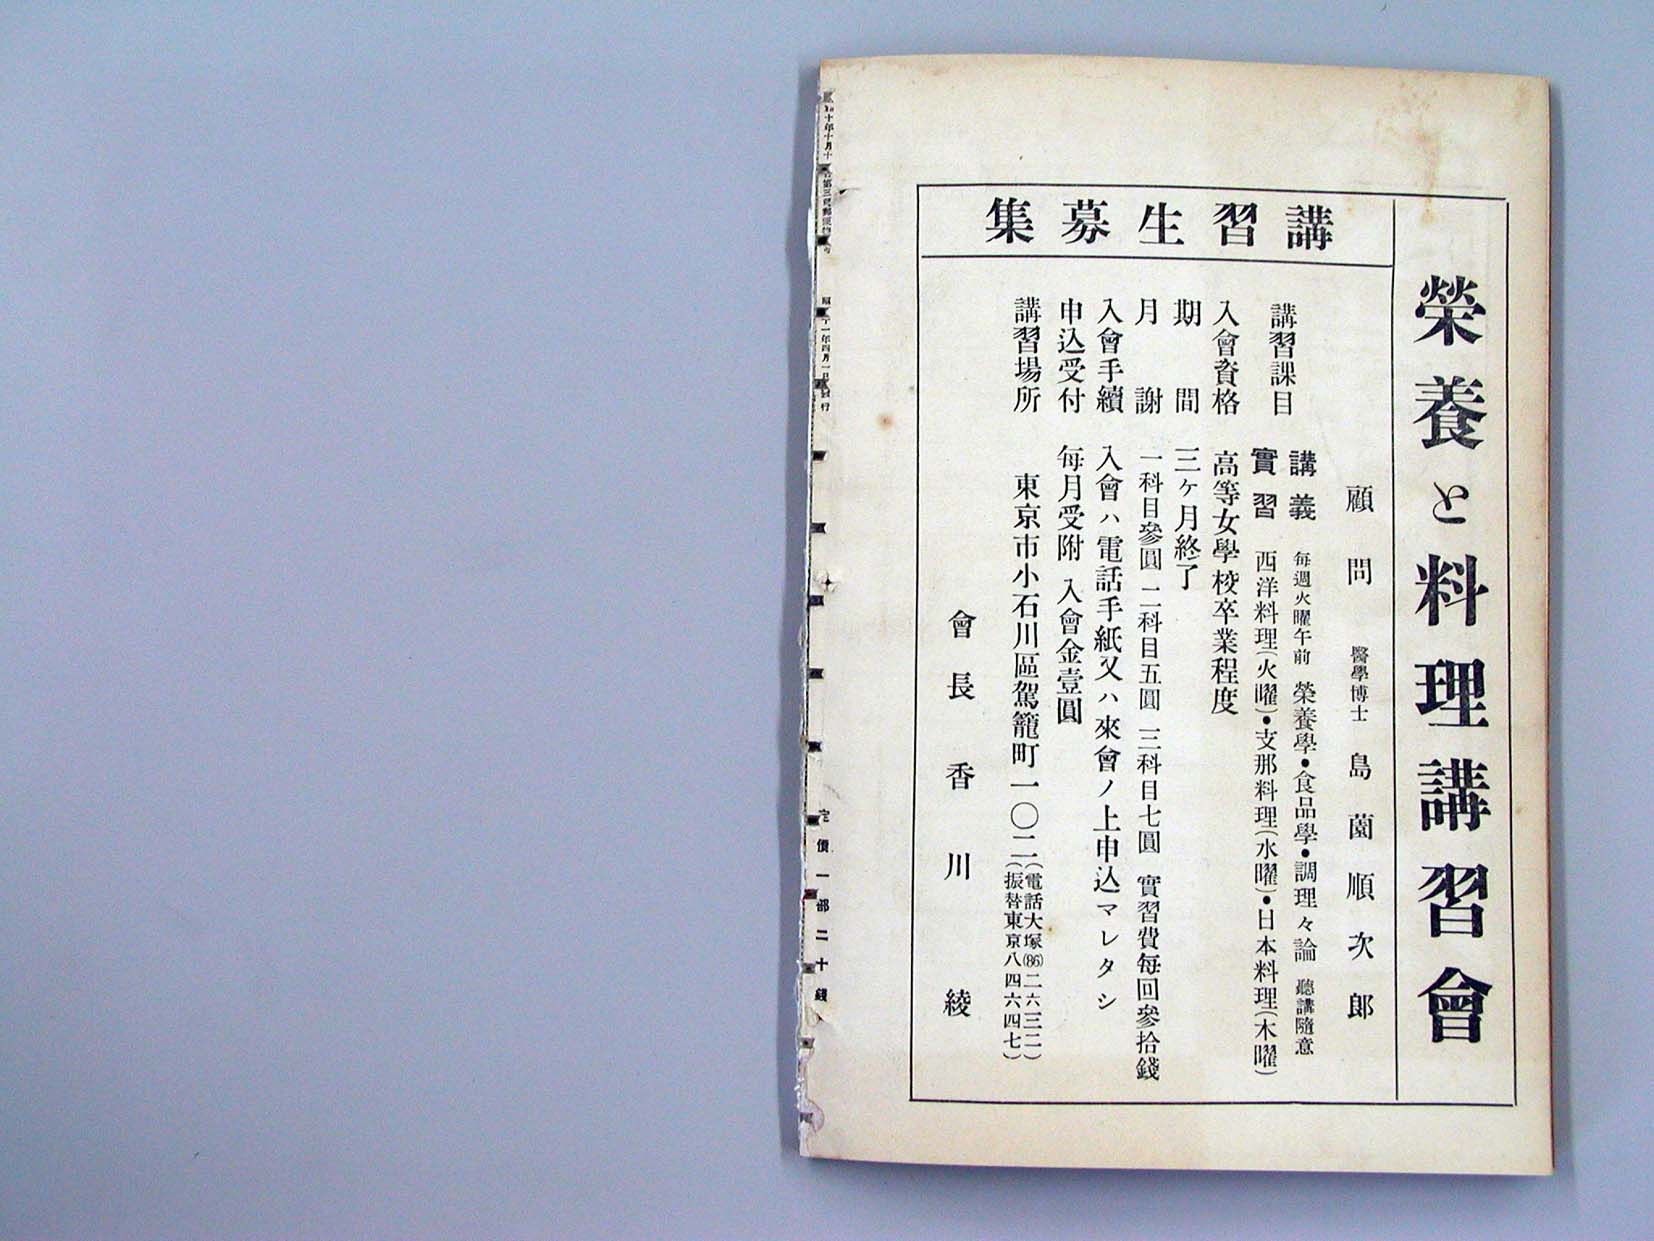 榮養と料理講習會
講習生募集
顧問 醫學博士 島薗順次郎
講習課目
講義 每週火曜午前 榮養學・食品學・調理々論 聽講隨意
實習 西洋料理(火曜)・支那料理(水曜)・日本料理(木曜)
入會資格 高等女學校卒業程度
期間 三ヶ月終了
月謝 一科目參圓 二科目五圓 三科目七圓 實習費每回參拾錢
入會手續 入會ハ電話手紙又ハ來會ノ上申込マレタシ
申込受付 每月受附 入會金壹圓
講習場所 東京市小石川區駕籠町一〇二
(電話大塚(86)二六三二)
(振替東京八四六四七)
會長 香川綾
十年十月十
第三
一年四月一日
行
定價一部二十錢